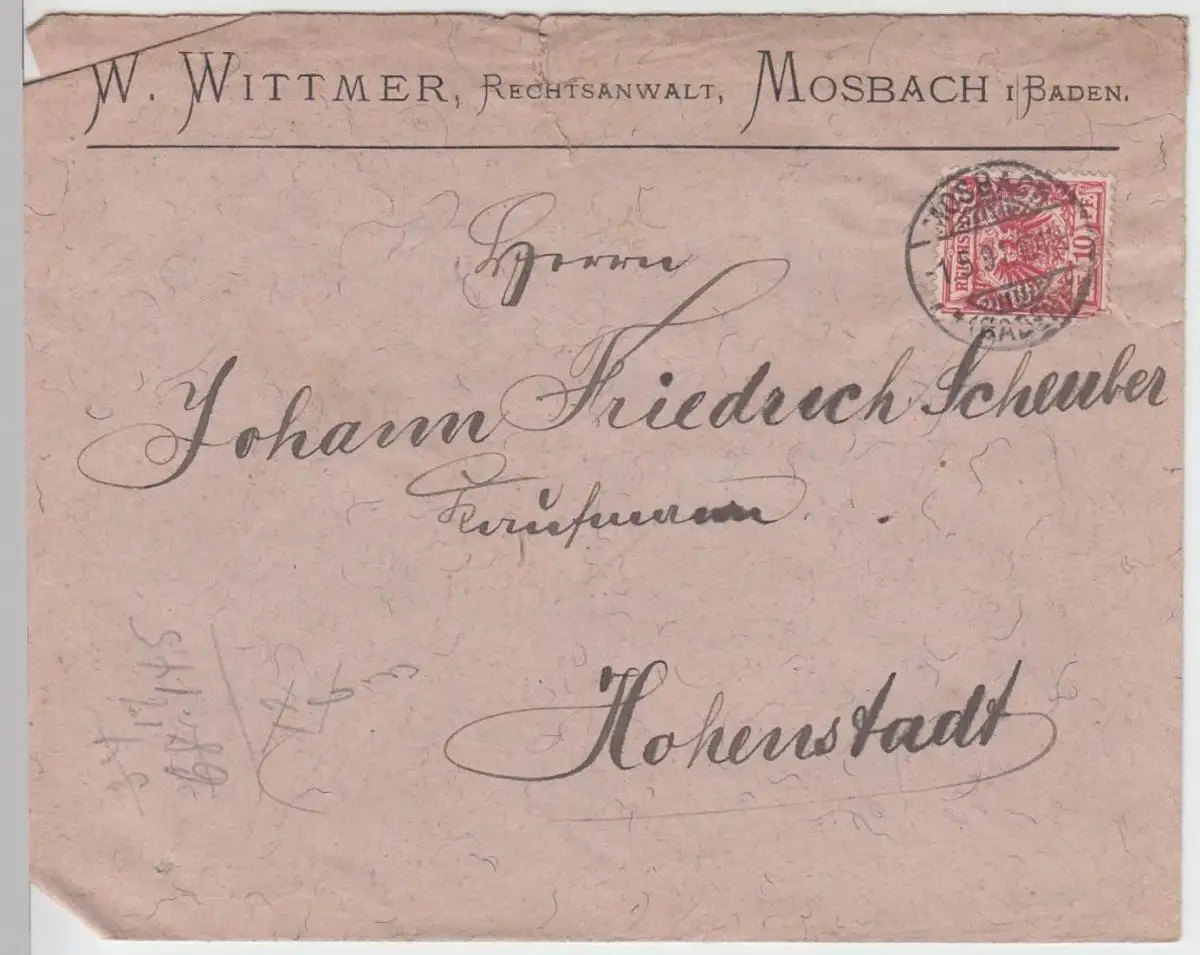 W. WITTMER, RECHTSANWALT, MOSBACH I/BADEN.
MOSBACH
(BADEN)
REICHSPOST
10 PF
Herrn
Johann Friedrich Scheuber
Kaufmann.
Hohenstadt